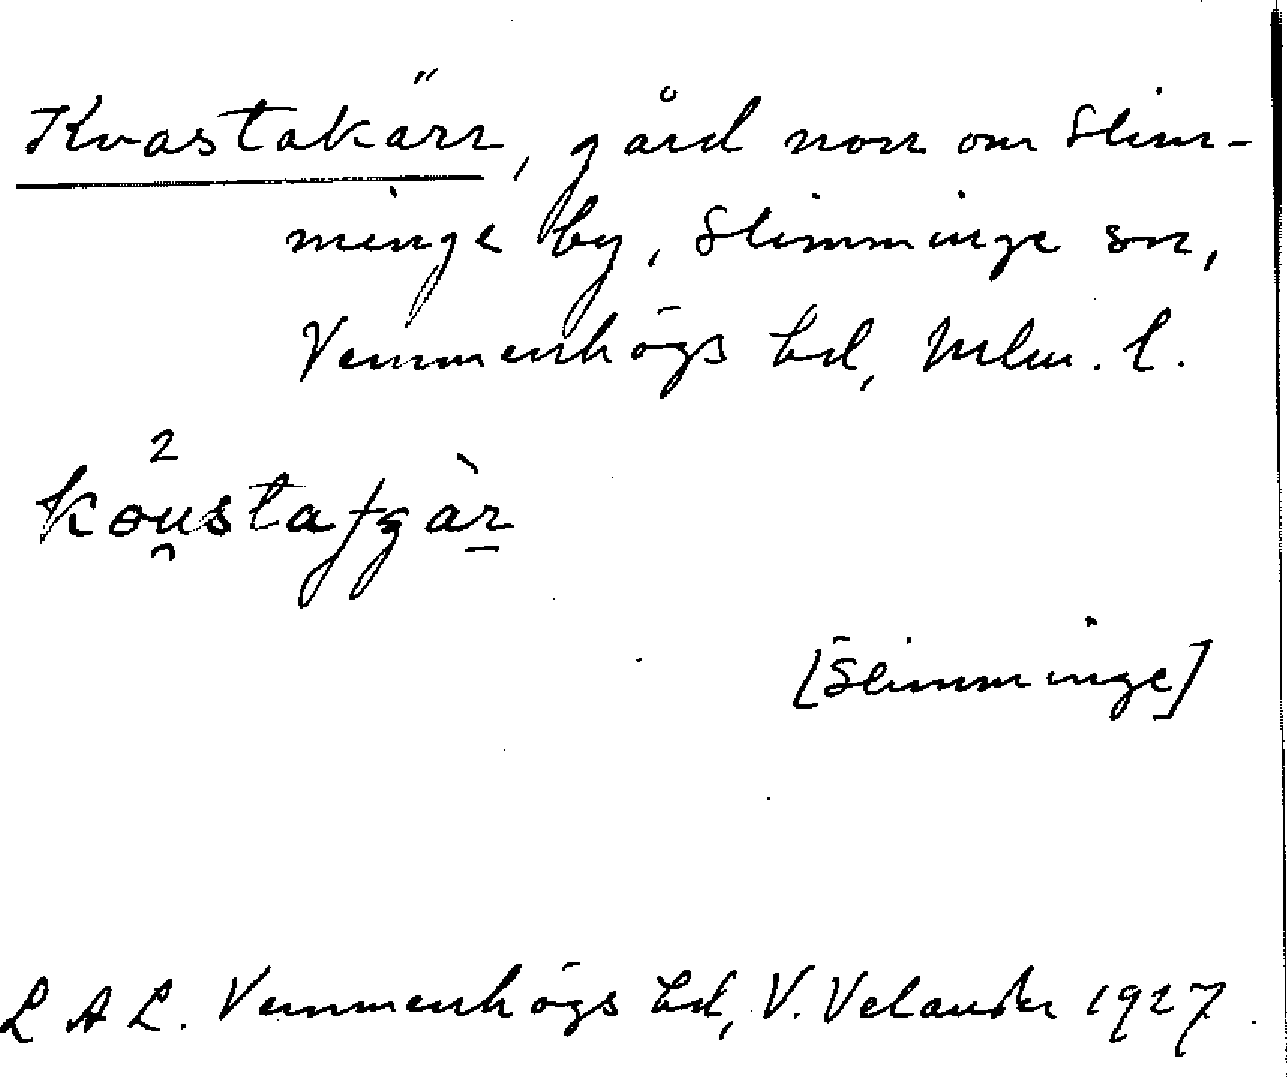 Kvastakärr, gård norr om Slim-
minge by, Slimminge sn,
Vemmenhögs hd, Mlm. l.
[Slimminge]
L A L. Vemmenhögs hd, V. Velander 1927.